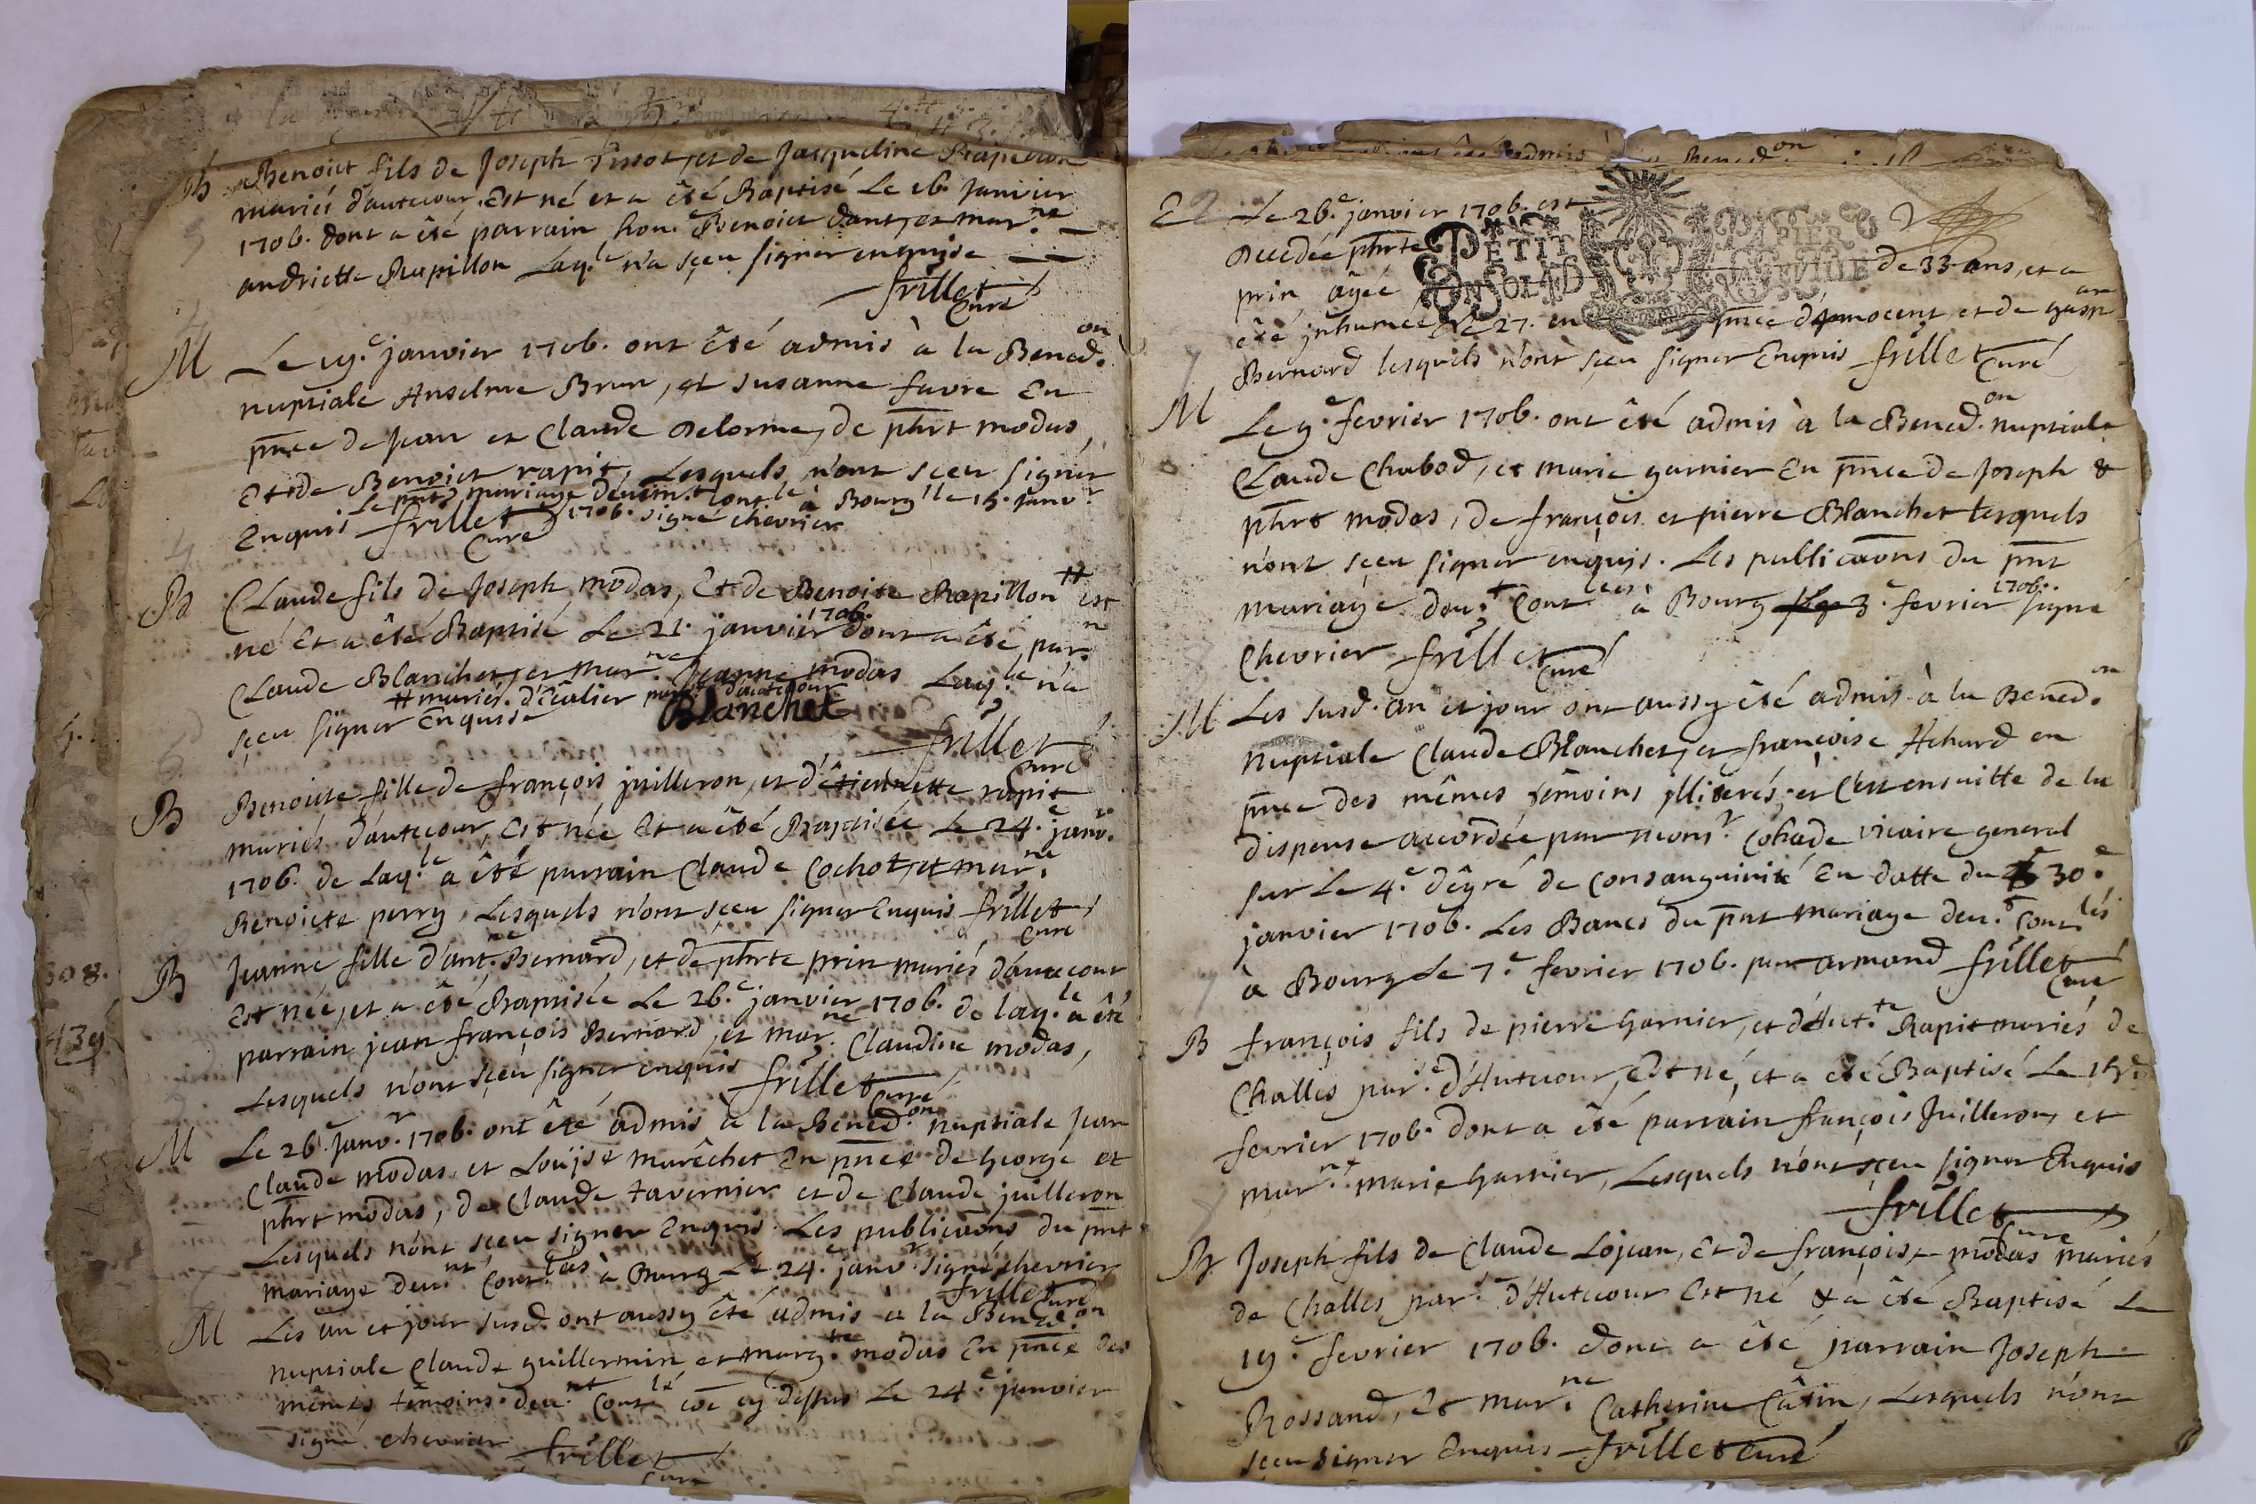 B Benoict fils de Joseph fissot, et de Jacqueline Rapillon
mariés d'autecour. Est né et a êté Baptisé Le 16. Janvier
1706. dont a êté parrain hon.e Benoict dant, et mar.ne
andriette Rapillon Laq.le n'a sçeu signer enquise
frillet
Curé
M Le 19.e janvier 1706. ont êté admis à la Bened.on
nuptiale Anselme Brun, et susanne favre En
pnce de Jean et Claude Delorme, de phrt modas,
Et de Benoict rapit, Lesquels n'ont sceu signer
Le pnt mariage dëuem.t contlé à Bourg le 15. janv.r
Enquis frillet 1706. signé chevrier
Curé
B Claude fils de Joseph modas, Et de Benoite Rapillon # est
né Et a êté Baptisé Le 21. janvier 1706. dont a êté par.n
Claude Blanchet, et mar.ne Jeanne modas Laq.le n'a
# mariés d'Ecalier d'autecour
sçeu signer Enquise Blanchet
frillet
Curé
B Benoitte fille de françois juilleron, et d'êtiennette rapit
mariés d'autecour, Est née Et a êté Baptisée Le 24.e janv.r
1706. de Laq.le a êté parrain Claude Cochot, et mar.ne
Benoicte perry, Lesquels n'ont sçeu signer Enquis frillet
Curé
B Jeanne fille d'ant.ne Bernard, et de phrte prin mariés d'autecour
Est née, et a êté Baptisée Le 26.e janvier 1706. de laq.le a êté
parrain jean françois Bernard, et mar.ne Claudine modas,
Lesquels n'ont sçeu signer enquis frillet
Curé
M Le 26.e Janv.r 1706. ont êté admis à la Bened.on nuptiale Jean
Claude modas et Louïse marêchet En pnce de George et
phrt modas, de Claude tavernier et de Claude juilleron
Lesquels n'ont sceu signer Enquis. Les publicaons du pnt
mariage deu.nt Contlées à Bourg Le 24.e janv.r signé chevrier
frillet
Curé
M Les an et jour susd. ont aussy êté admis à la Bened.on
nuptiale Claude guillermin et marg.te modas En pnce des
mêmes têmoins. deu.nt Contlé cõe cy dessus Le 24.e janvier
signé chevrier frillet
Curé
E Le 26.e janvier 1706. est
Decedée phrte
PETIT PAPIER
prin âgée de 33 ans, et a
êté jnhumée le 27. en pnce d'jnnocent, et de
Bernard lesquels n'ont sçeu signer Enquis frillet
Curé
M Le 9.e fevrier 1706. ont êté admis à la Bened.on nuptiale
Claude Chabod, et marie garnier En pnce de Joseph &
phrt modas, de françois et pierre Blanchet lesquels
n'ont sçeu signer enquis. Les publicaons du pnt
mariage deu.t Contlées à Bourg 3.e fevrier 1706. signé
Chevrier frillet
Curé
M Les susd. an et jour ont aussy êté admis à la Bened.on
nuptiale Claude Blanchet, et françoise Hchard en
pnce des mêmes têmoins jlliterés, et c'est ensuitte de la
dispense accordée par mons.r Cohade vicaire general
sur Le 4.e dêgré de consanguinité En datte du 30.e
janvier 1706. Les Bancs du pnt mariage deu.t contlés
à Bourg Le 7.e fevrier 1706. par armand frillet
Curé
B françois fils de pierre Garnier, et d'Hut.te Rapit mariés de
Challes par.e d'Hutecour, Est né, et a êté Baptisé Le 15.e
fevrier 1706. dont a êté parrain françois Juilleron, et
mar.ne marie Garnier, Lesquels n'ont sçeu signer Enquis
frillet
Curé
B Joseph fils de Claude Lojean, Et de françoise modas mariés
de Challes par.e d'Hutecour Est né & a êté Baptisé Le
19.e fevrier 1706. dont a êté parrain Joseph
Rossand, Et mar.ne Catherine Câtin, Lesquels n'ont
sçeu signer Enquis frillet Curé